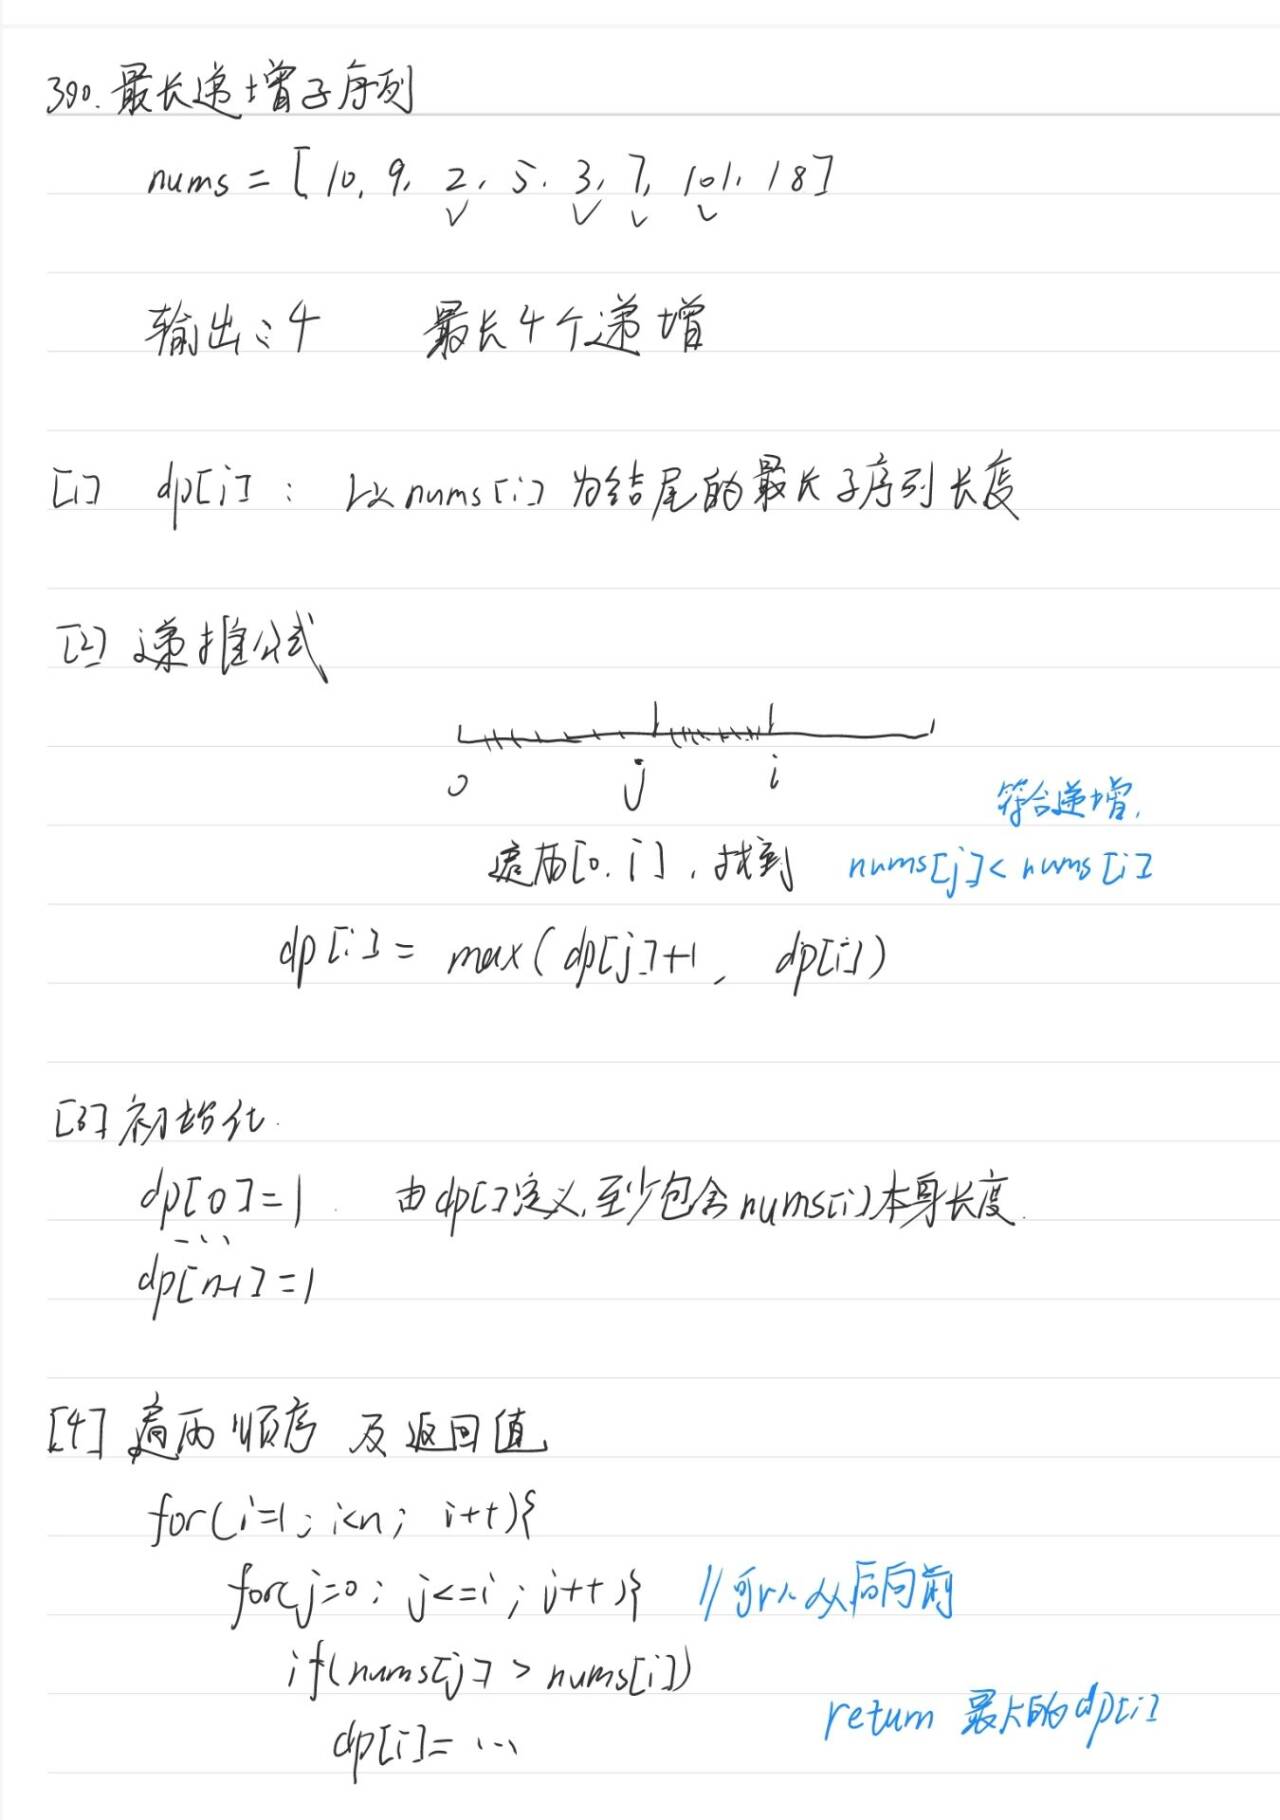 300. 最长递增子序列
nums = [10, 9, 2, 5, 3, 7, 101, 18]
输出:4 最长4个递增
[1] dp[i]: 以nums[i]为结尾的最长子序列长度
[2] 递推公式
0 j i
符合递增,
遍历[0, i], 找到 nums[j]< nums[i]
dp[i] = max(dp[j]+1, dp[i])
[3] 初始化.
dp[0]=1 由dp[]定义,至少包含nums[i]本身长度.
...
dp[n-1]=1
[4] 遍历顺序 及返回值
for(i=1; i<n; i++){
for(j=0; j<=i; j++){ //可以从后向前
if(nums[j] > nums[i])
return 最大的dp[i]
dp[i]= ...